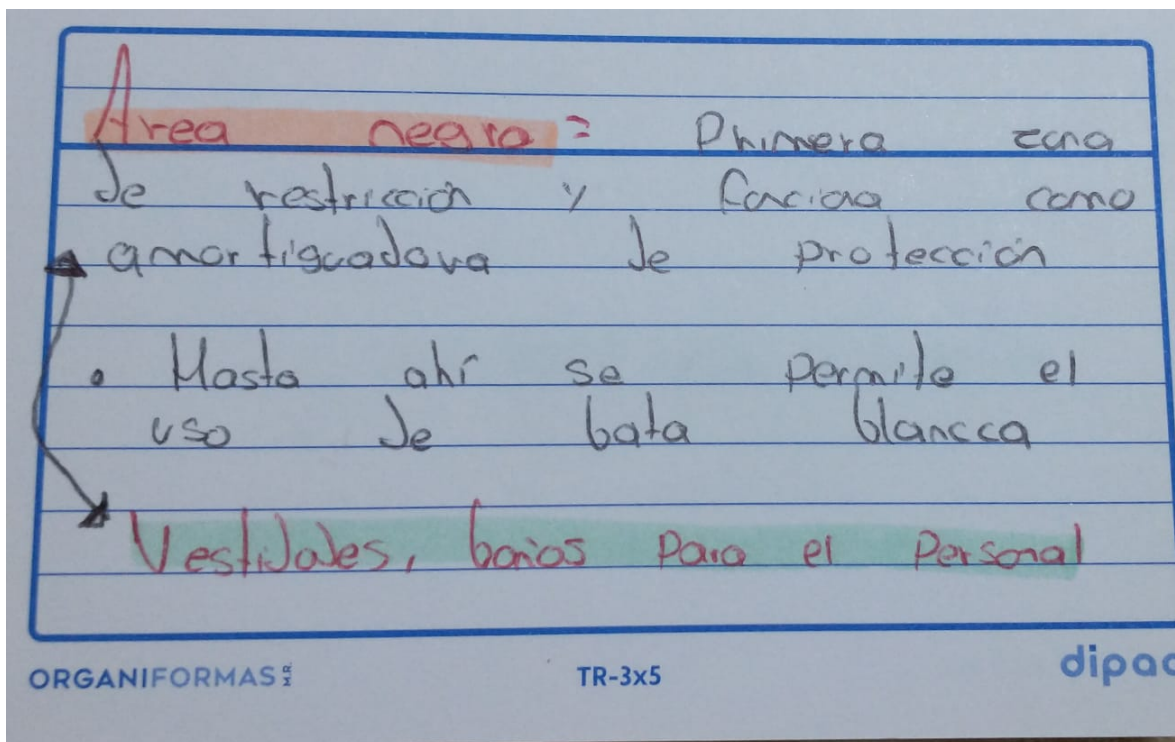 Área negra = Primera zona
de restricción y funciona como
amortiguadora de protección
• Hasta ahí se permite el
uso de bata blancca
Vestidores, baños para el personal
ORGANIFORMAS
TR-3x5
dipac